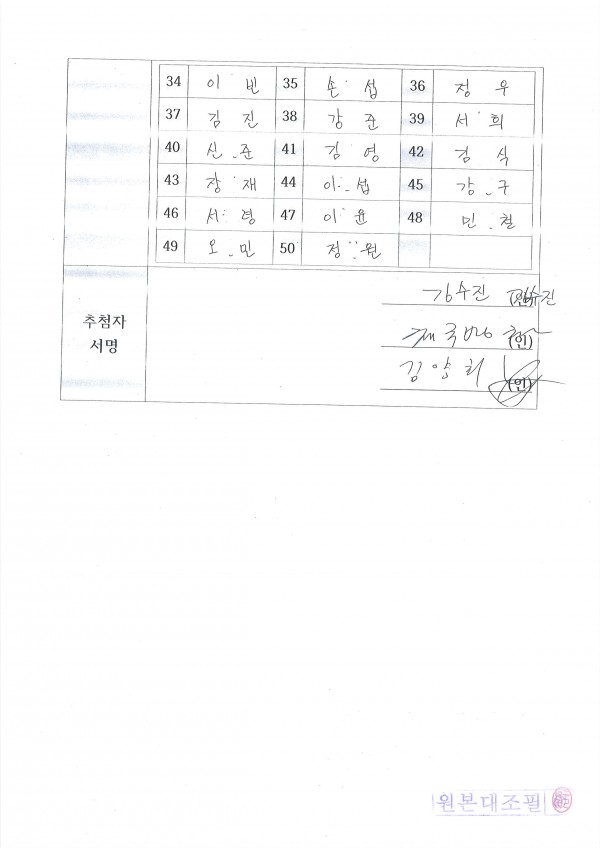 34 이 빈 35 손 섭 36 정 우
37 김 진 38 강 준 39 서 희
40 신 준 41 김 영 42 김 식
43 장 재 44 이 섭 45 강 구
46 서 령 47 이 윤 48 민 철
49 오 민 50 정 원
추첨자
서명
김수진 (인)
(인)
김양희 (인)
원본대조필